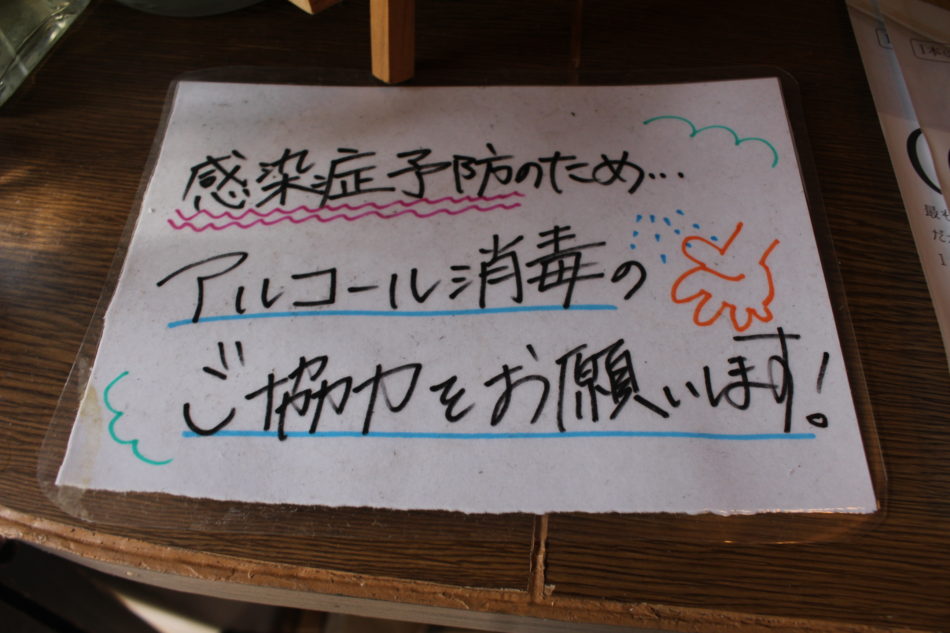 感染症予防のため…
アルコール消毒の
ご協力をお願いします!
最も